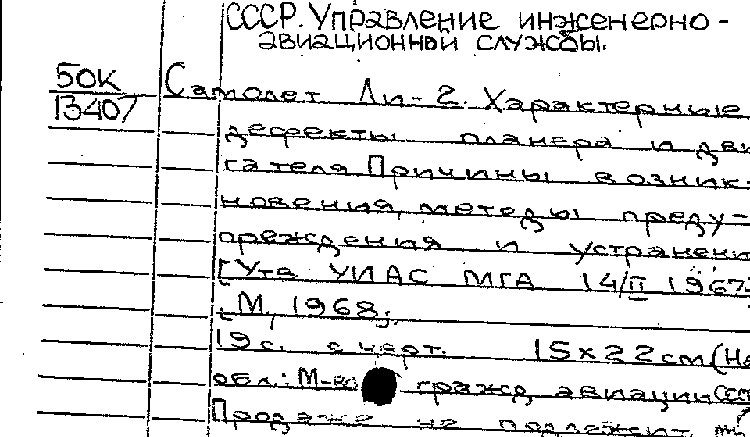 СССР. Управление инженерно-
авиационной службы.
БОК Самолет Ли-2. Характерные
13407 дефекты планера и дви
гателя Причины возник-
новения, методы преду-
преждения и устранени
[Утв УИАС МГА 14/II 1967
[М, 1968;
19 с. с черт. 15х22см (На
обл.: М-во гражд авиации СССР
Продаже не подлежит